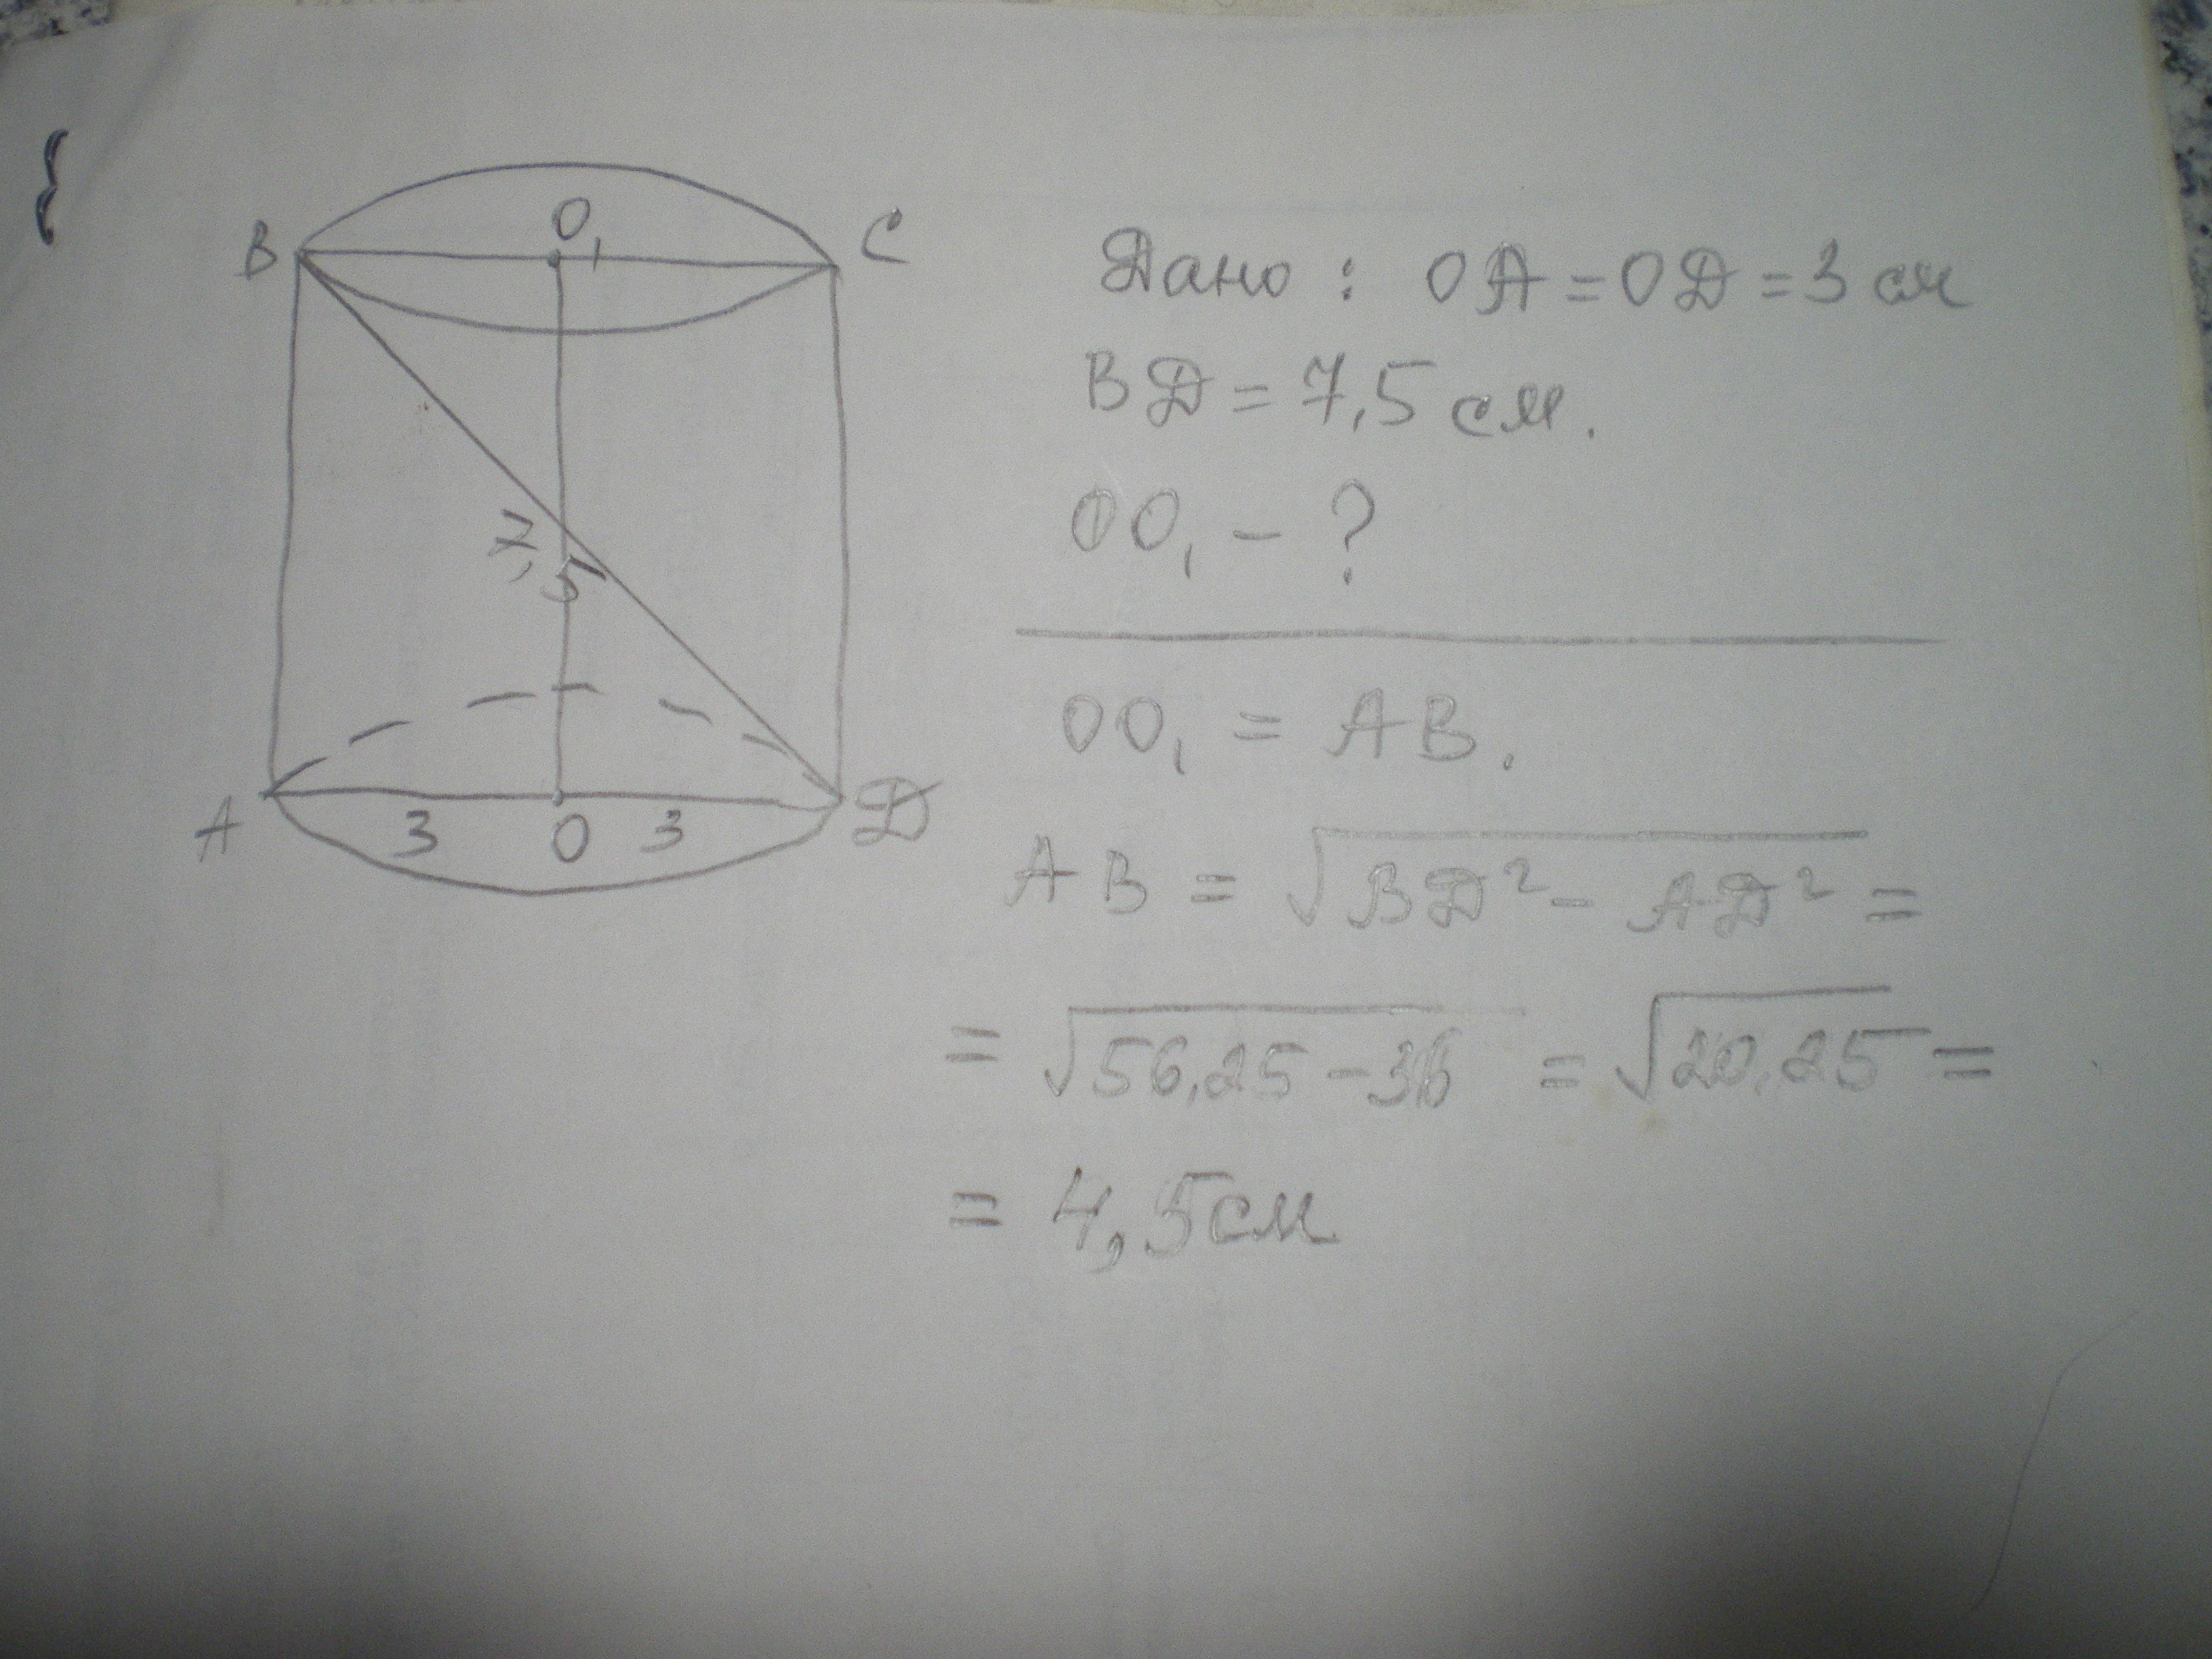 B O₁ C
7,5
A 3 O 3 Д
Дано : OA = OД = 3 см
BД = 7,5 см.
OO₁ - ?
OO₁ = AB.
AB = √BД² - AД² =
= √56,25 - 36 = √20,25 =
= 4,5 см